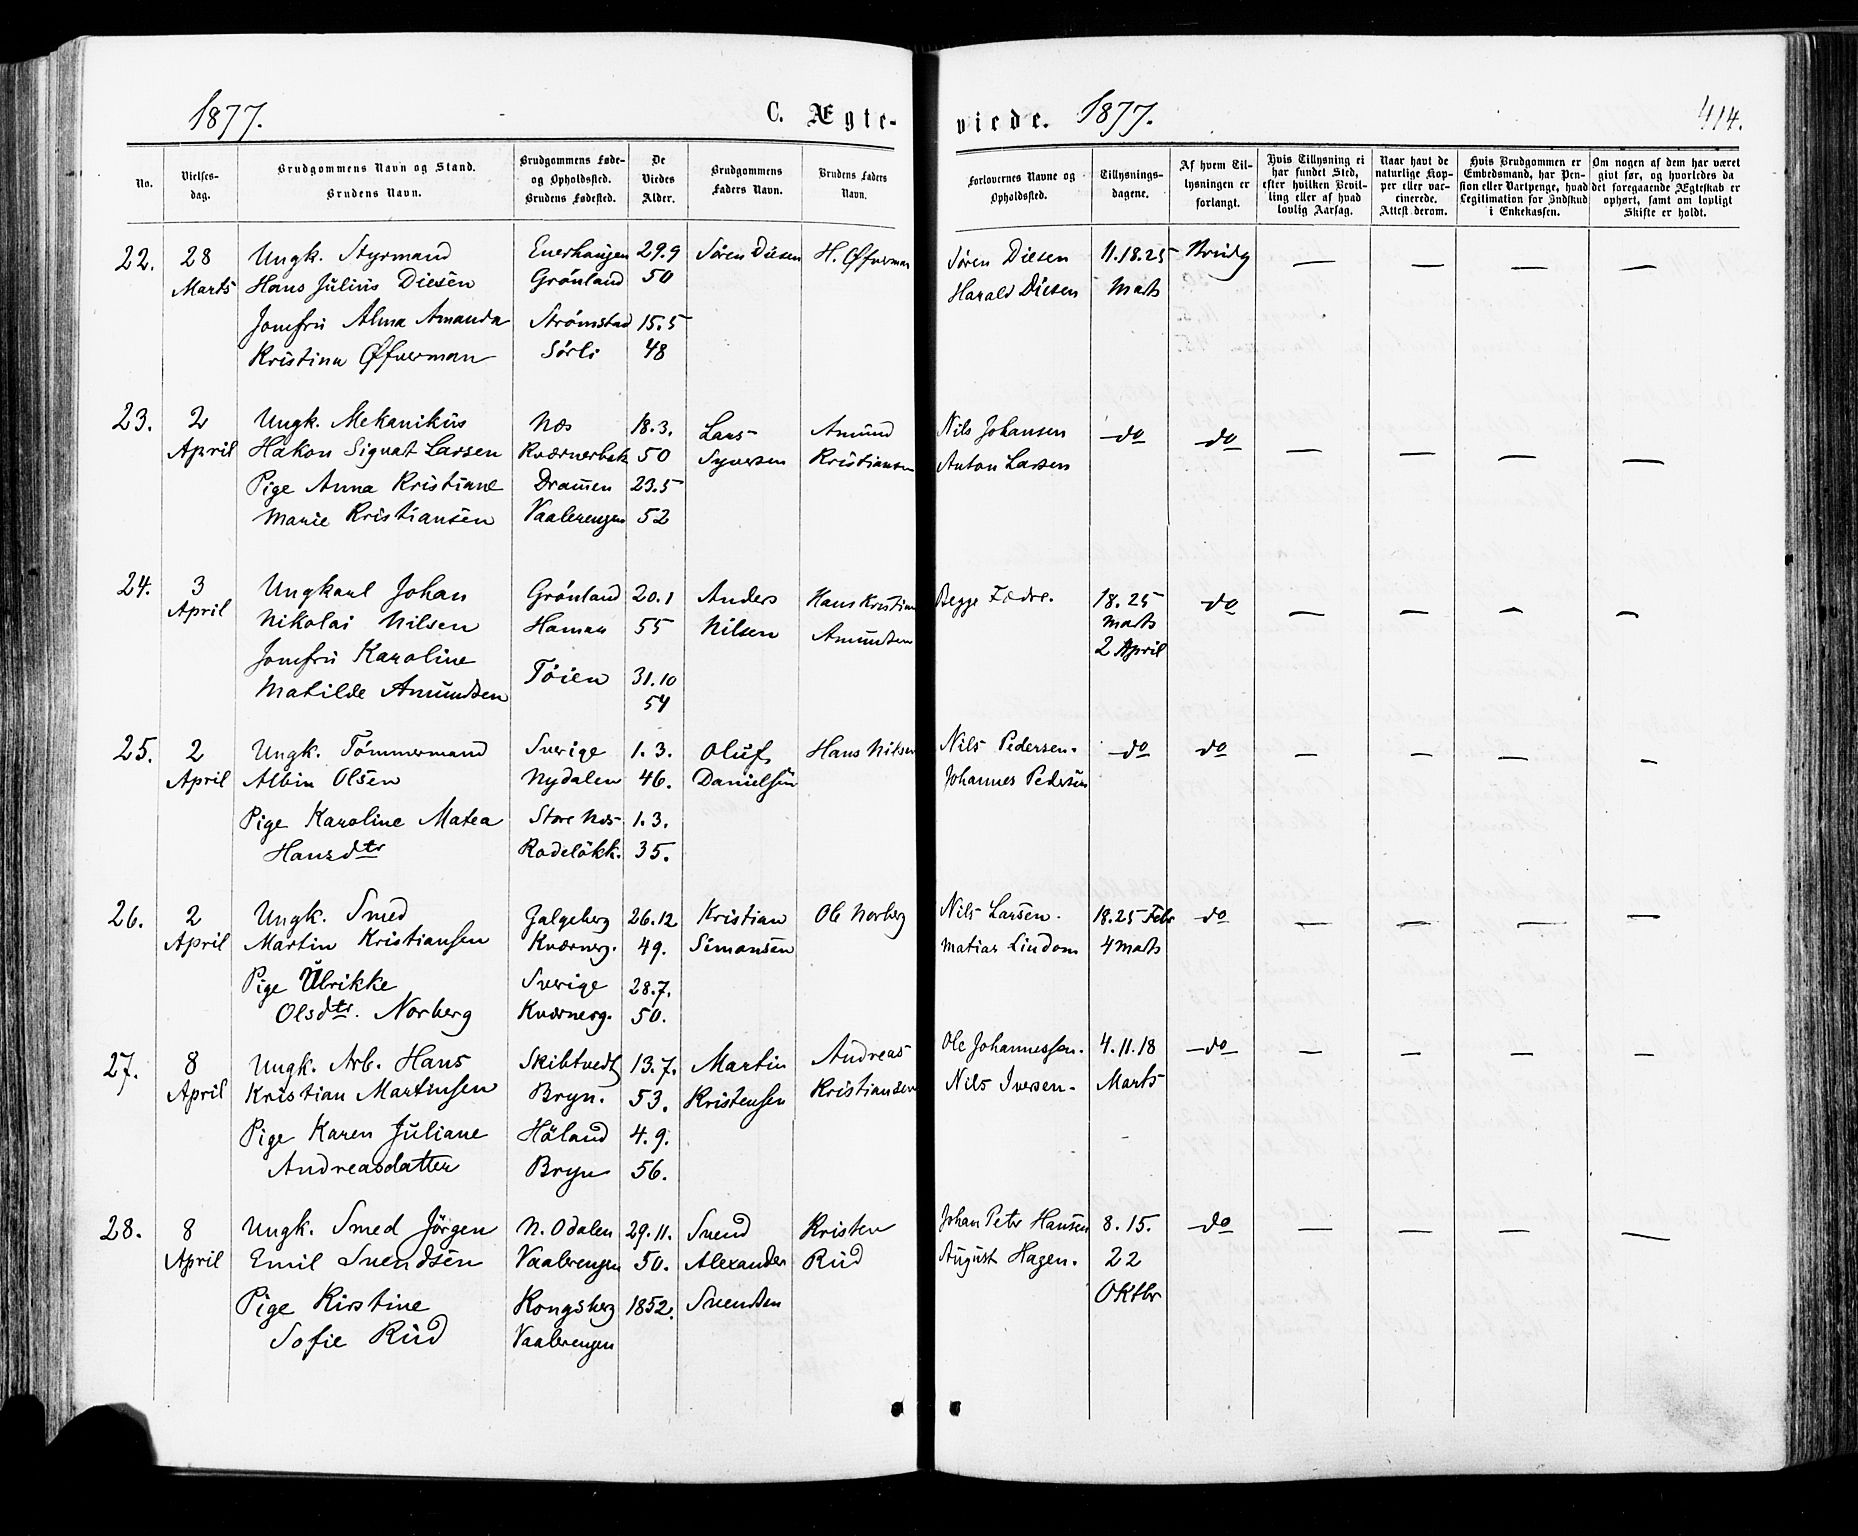 1877. C. Ægte-
No. Vielses-dag. Brudgommens Navn og Stand. Brudens Navn. Brudgommens Føde- og Opholdssted. Brudens Fødested. De Viedes Alder. Brudgommens Faders Navn. Brudens Faders Navn.
22. 28 Ungk. Styrmand Enerhaugen 29.9 Sören Diesen H. Øfverman
Marts Hans Julius Diesen Grönland 50
Jomfru Alma Amanda Strömstad 15.5
Kristina Øfverman Sörli 48
23. 2 Ungk. Mekanikus Næs 18.3. Lars Amund
April Hakon Sigvat Larsen Kværnerbak 50 Syversen Kristiansen
Pige Anna Kristiane Dramen 23.5
Marie Kristiansen Vaalerengen 52
24. 3 Ungkarl Johan Grönland 20.1 Anders Hans Kristian
April Nikolai Nilsen Hamar 55 Nilsen Amundsen
Jomfru Karoline
Matilde Amundsen Töien 31.10
54
25. 2 Ungk. Tömmermand Sverige 1.3. Oluf Hans Nilsen
April Albin Olsen Nydalen 46. Danielsen
Pige Karoline Matea Store Næs 1.3.
Hansdtr Rodelökk. 35.
26. 2 Ungk. Smed Galgeberg 26.12 Kristian Ole Norberg
April Martin Kristiansen Kværnerg. 49. Simonsen
Pige Ulrikke Sverige 28.7.
Olsdtr. Norberg Kværnerg. 50.
27. 8 Ungk. Arb. Hans Skibtvedt 13.7. Martin Andreas
April Kristian Martinsen Bryn. 53. Kristensen Kristiansen
Pige Karen Juliane Höland 4.9.
Andreasdatter Bryn 56.
28. 8 Ungk. Smed Jörgen N. Odalen 29.11. Svend Kristen
April Emil Svendsen Vaalerengen 50. Alexander Rud
Pige Kirstine Kongsberg 1852. Svendsen
Sofie Rud Vaalerengen
viede. 1877. 414.
Forlovernes Navne og Opholdssted. Tillysnings-dagene. Af hvem Tillysningen er forlangt. Hvis Tillysning ei har fundet Sted, efter hvilken Bevilling eller af hvad lovlig Aarsag. Naar havt de naturlige Kopper eller vaccinerede. Attest derom. Hvis Brudgommen er Embedsmand, har Pension eller Vartpenge, hvad Legitimation for Indskud i Enkekassen. Om nogen af dem har været givt før, og hvorledes da det foregaaende Ægteskab er ophørt, samt om lovligt Skifte er holdt.
Sören Diesen 11.18.25 Brudg — — — —
Harald Diesen Marts
Nils Johansen do do — — — —
Anton Larsen
Begge Fædre. 18.25 do — — — —
Marts
2 April
Nils Pedersen. do do — — — —
Johannes Pedersen
Nils Larsen. 18.25 Febr do — — — —
Matias Lindom 4 Marts
Ole Johannessen. 4.11.18 do — — — —
Nils Iversen. Marts
Johan Petr Hansen 8.15. do — — — —
August Hagen. 22
Oktbr